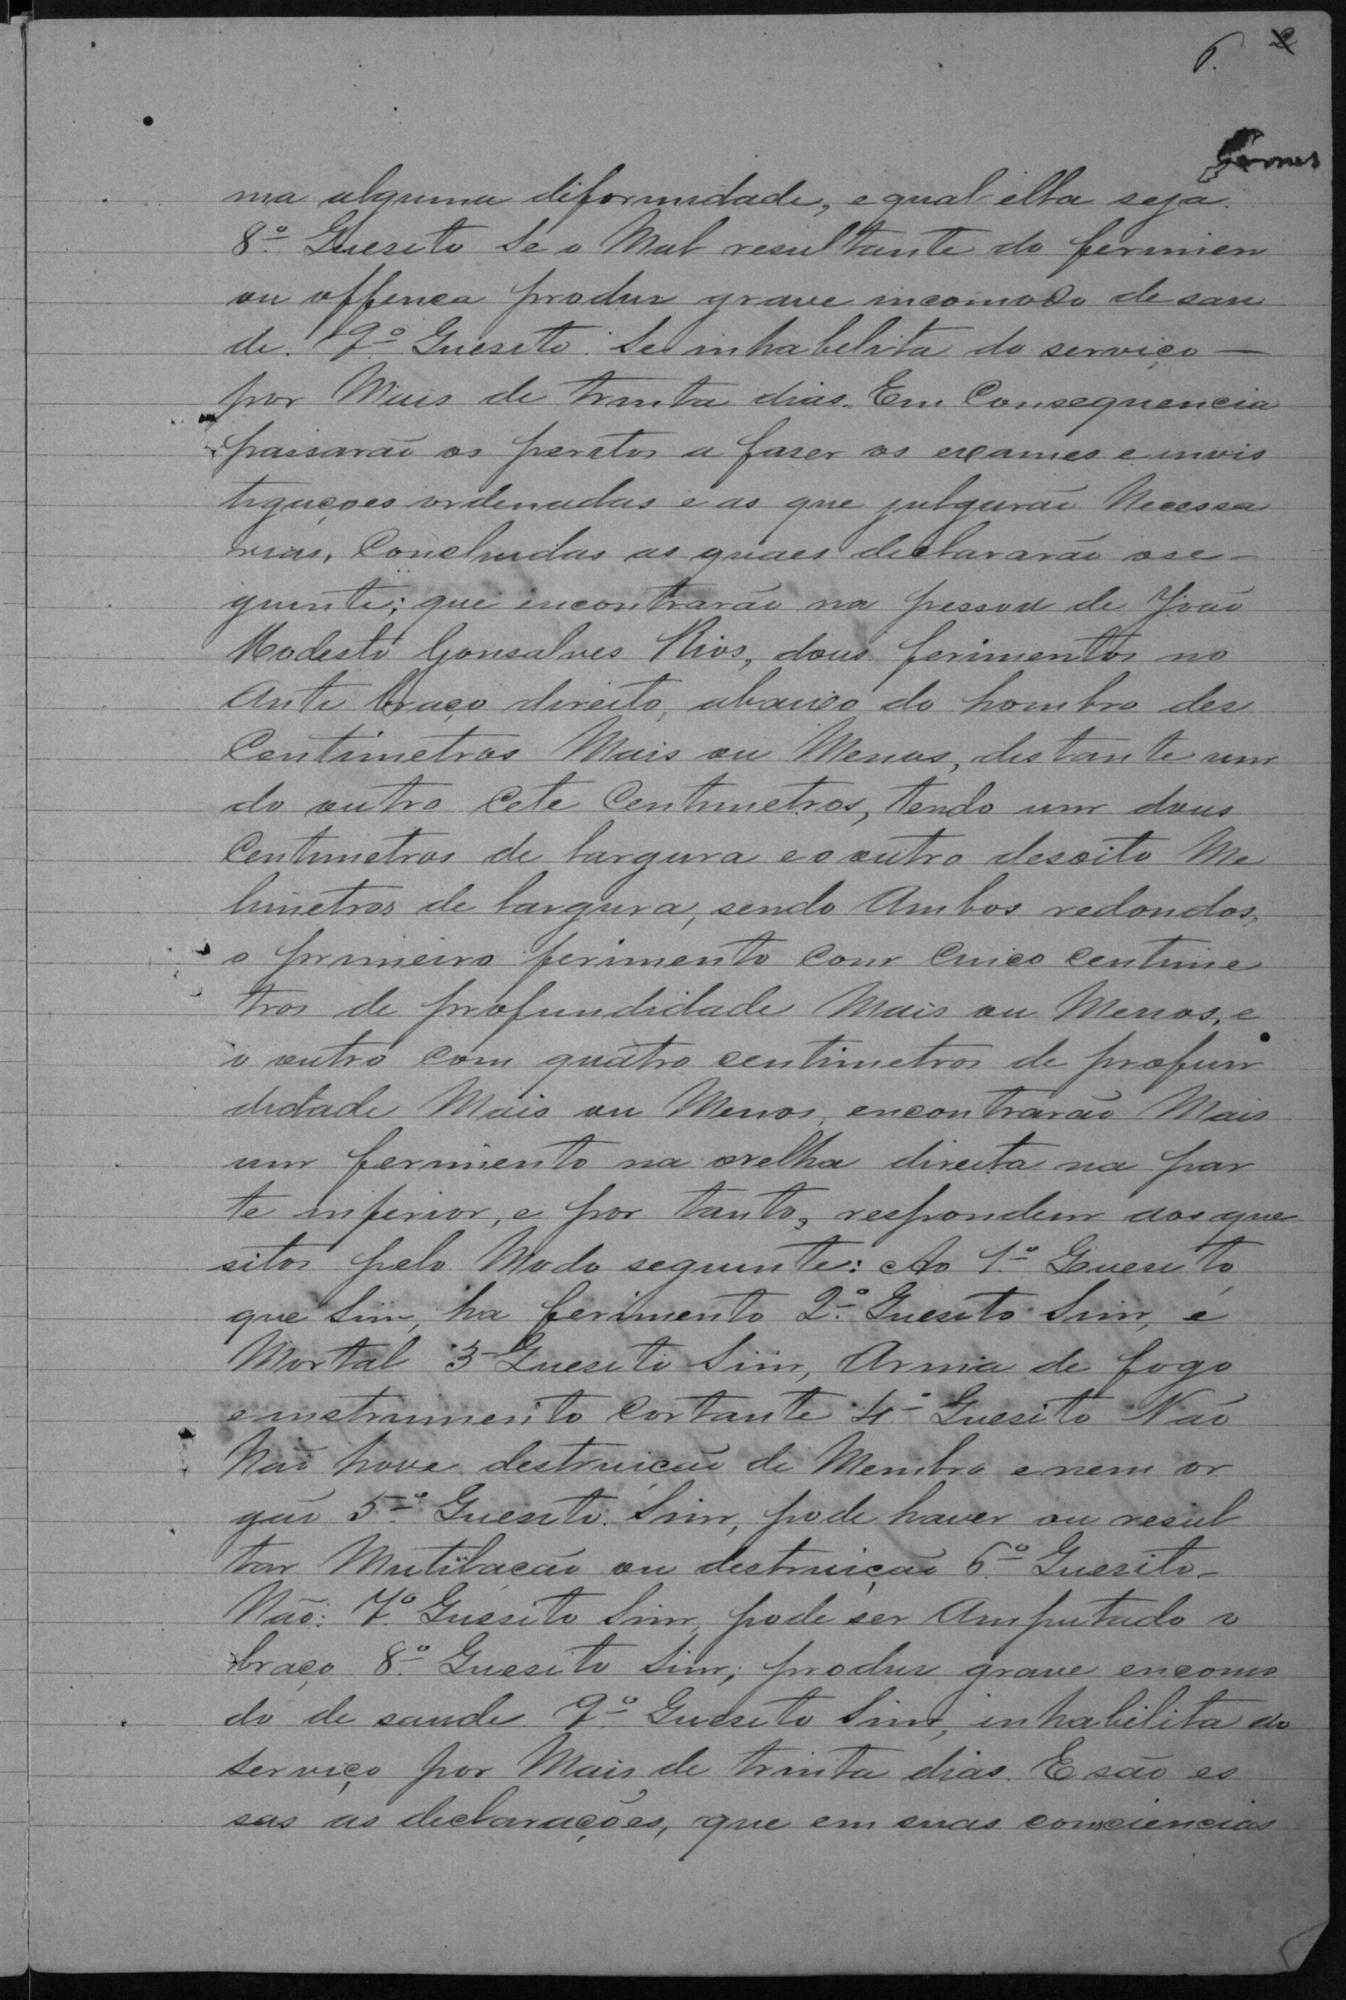 6.
Gomes
ma alguma diformidade, e qual ella seja.
8º Quesito Se o Mal resultante do ferimen
ou offenca produz grave incomodo de sau
de. 9º Quesito. Se inhabelita do serviço —
por Mais de trinta dias. Em Consequencia
passarão os peritos a faser os exames e invis
tigaçoes ordenadas e as que julgarão Necessa
rias, Concluidas as quaes declararão o se-
guinte; que encontrarão na pessoa de João
Modesto Gonsalves Rios, dous ferimentos no
Ante braço direito, abaixo do hombro des
Centimetros Mais ou Menos, distante um
do outro Cete Centimetros, tendo um dous
Centimetros de largura e o outro desoito Me
limetros de largura, sendo Ambos redondos,
o primeiro ferimento com cinco centime
tros de profundidade Mais ou Menos, e
o outro com quatro centimetros de profun
didade Mais ou Menos, encontrarão Mais
um ferimento na orelha direita na par
te inferior, e por tanto, respondem aos que
sitos pelo Modo seguinte: Ao 1º Quesito
que Sim, ha ferimento 2º Quesito Sim, é
Mortal 3º Quesito Sim, Arma de fogo
e instrumento cortante 4º Quesito Não
Não hove destruicão de Membro e nem or
gão 5º Quesito. Sim, pode haver ou resul
tar Mutilacão ou destruição 6º Quesito-
Não: 7º Quesito Sim, pode ser Amputado o
braço 8º Quesito Sim; produz grave encomo
do de saude 9º Quesito Sim, inhabilita do
serviço por Mais de trinta dias. E são es
sas as declarações, que em suas consciencias